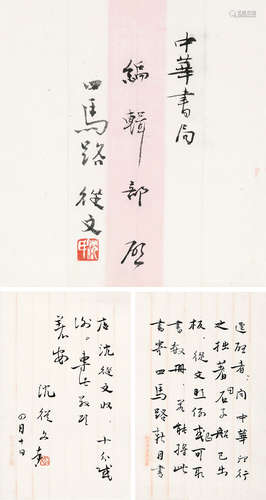 中華書局
編輯部啟
四馬路 從文
逕啟者:聞中華印行
之拙著石子船已出
板,從文或可取
書數冊,若能將此
書寄四馬路新月書
店沈從文收,十分感
謝!專此敬頌
著安
沈從文
四月十日